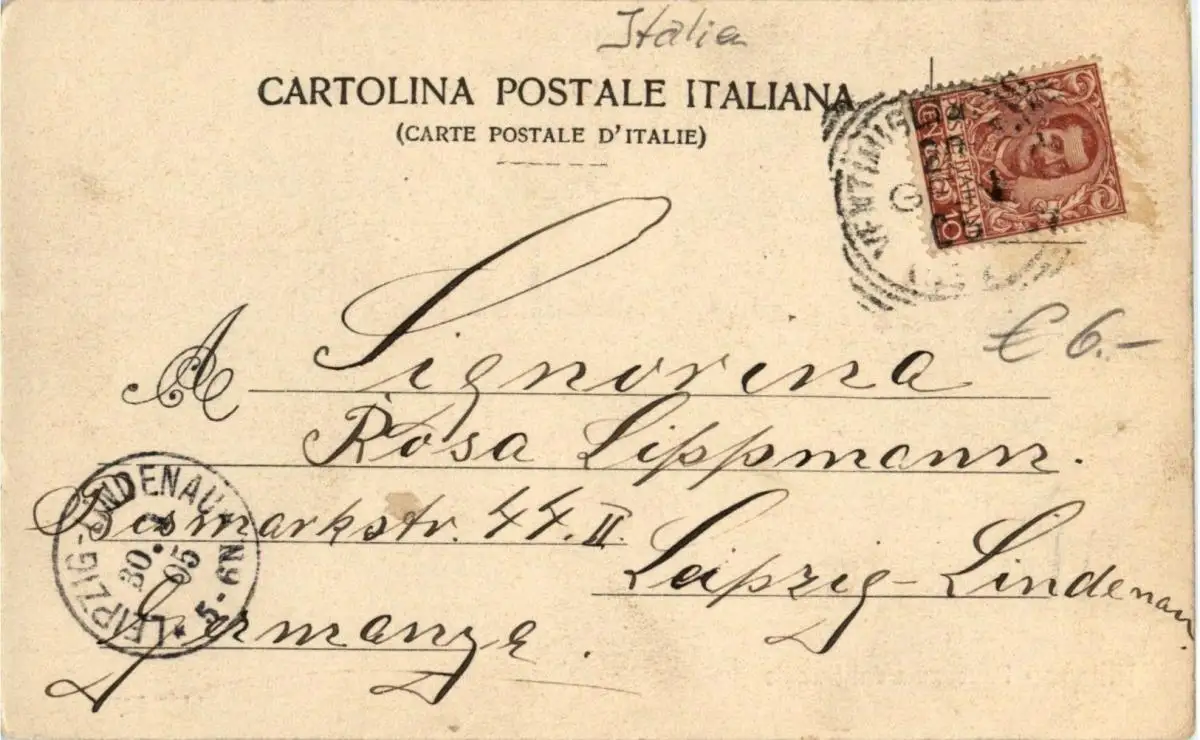 Italia
CARTOLINA POSTALE ITALIANA
(CARTE POSTALE D'ITALIE)
€ 6.-
A Signorina
Rosa Lippmann.
Bismarkstr. 44. II.
Leipzig-Lindenau
Germanya.
LEIPZIG-LINDENAU
30.
05
5-6N